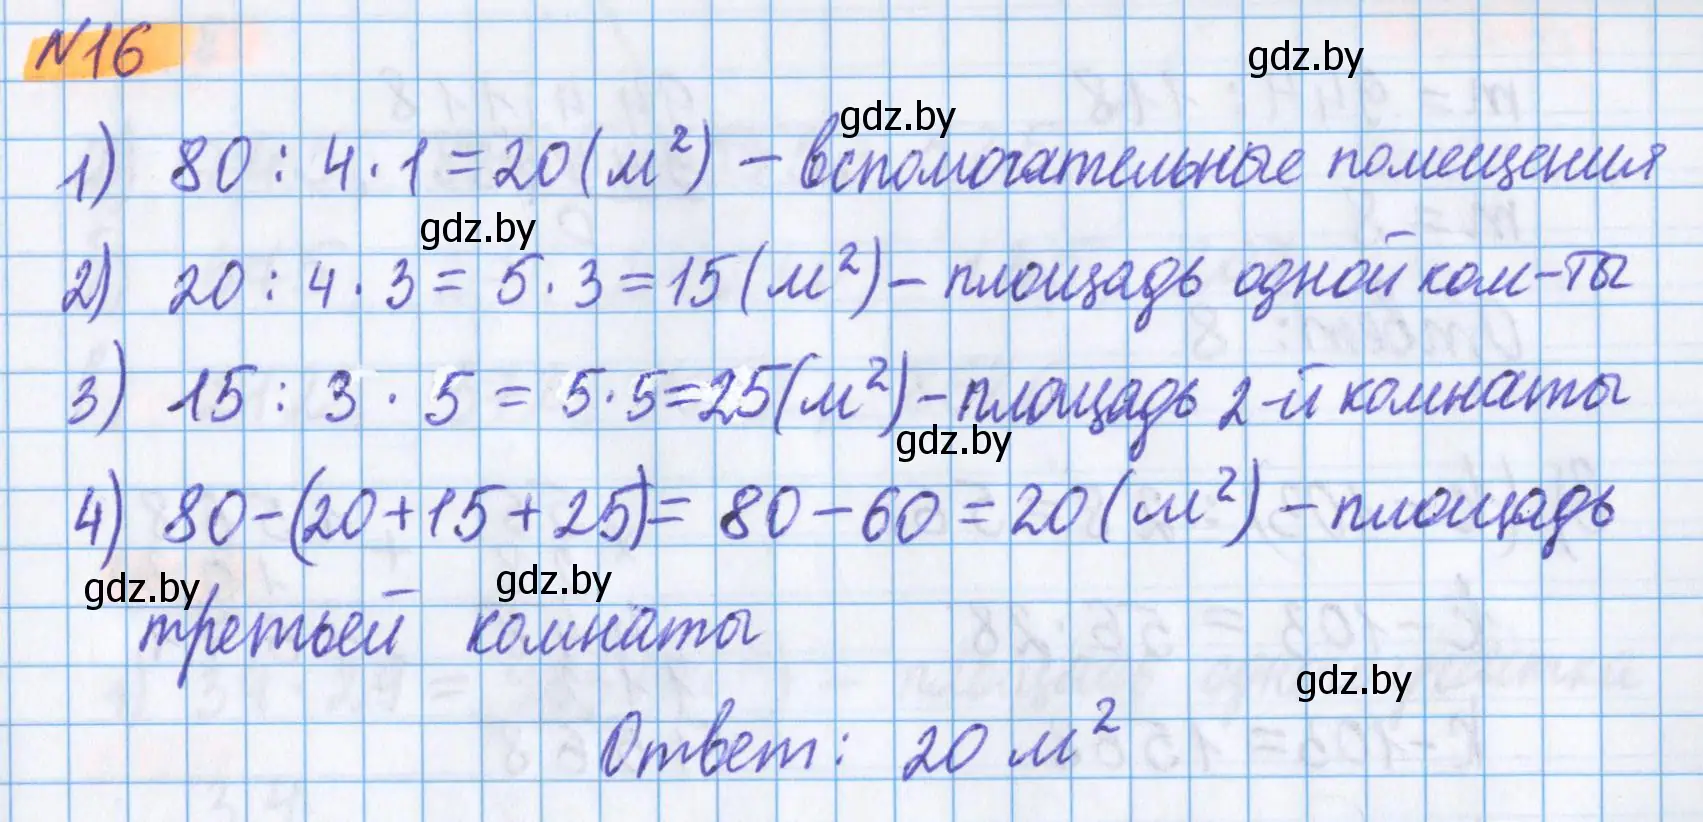 №16
gdz.by
gdz.by
1) 80 : 4 · 1 = 20 (м²) – вспомогательные помещения
gdz.by
2) 20 : 4 · 3 = 5 · 3 = 15 (м²) – площадь одной ком-ты
3) 15 : 3 · 5 = 5 · 5 = 25 (м²) – площадь 2-й комнаты
gdz.by
4) 80 – (20 + 15 + 25) = 80 – 60 = 20 (м²) – площадь
gdz.by gdz.by
третьей комнаты
gdz.by
Ответ: 20 м²